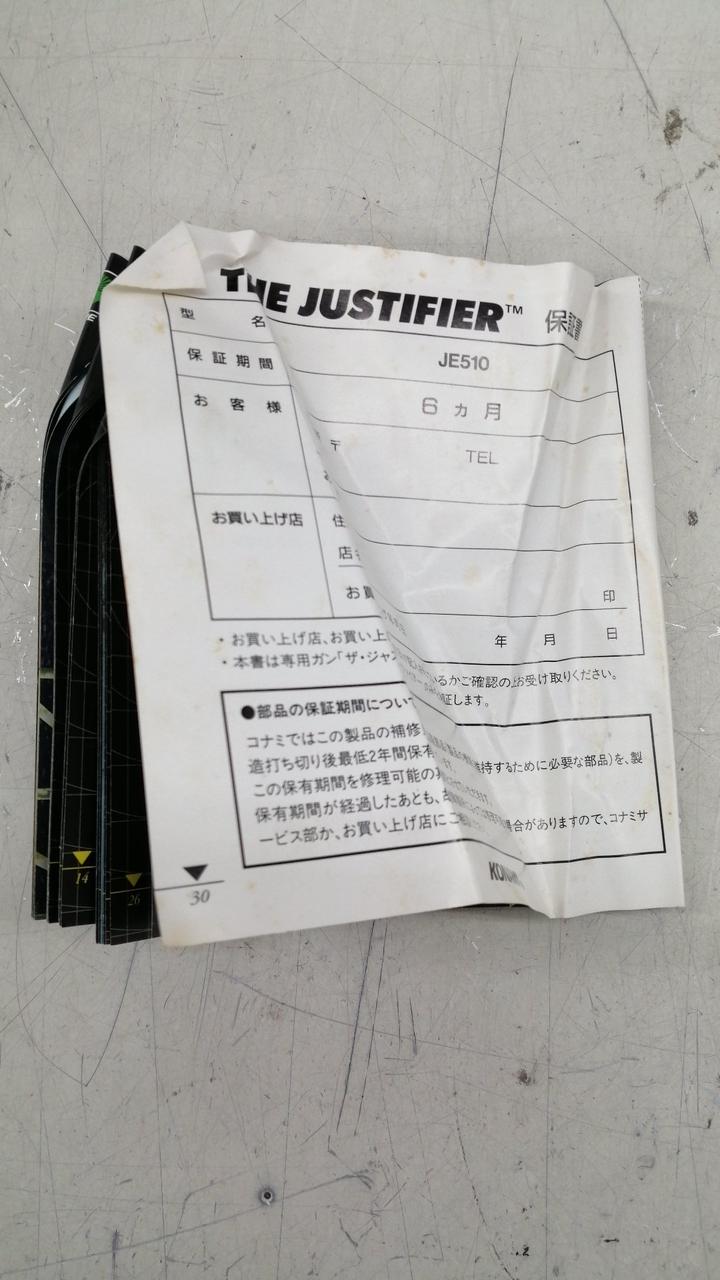 THE JUSTIFIER™ 保証書
型 名 JE510
保証期間 6ヵ月
お客様
〒 TEL
お買い上げ店 住
店
お買 印
年 月 日
・お買い上げ店、お買い上 いるかご確認の上お受け取りください。
・本書は専用ガン「ザ・ジャ 証します。
●部品の保証期間につい
コナミではこの製品の補修 持するために必要な部品)を、製
造打ち切り後最低2年間保有 ます。
この保有期間を修理可能の
保有期間が経過したあとも、 場合がありますので、コナミサ
ービス部か、お買い上げ店にご
KONAMI
30
26
14
E